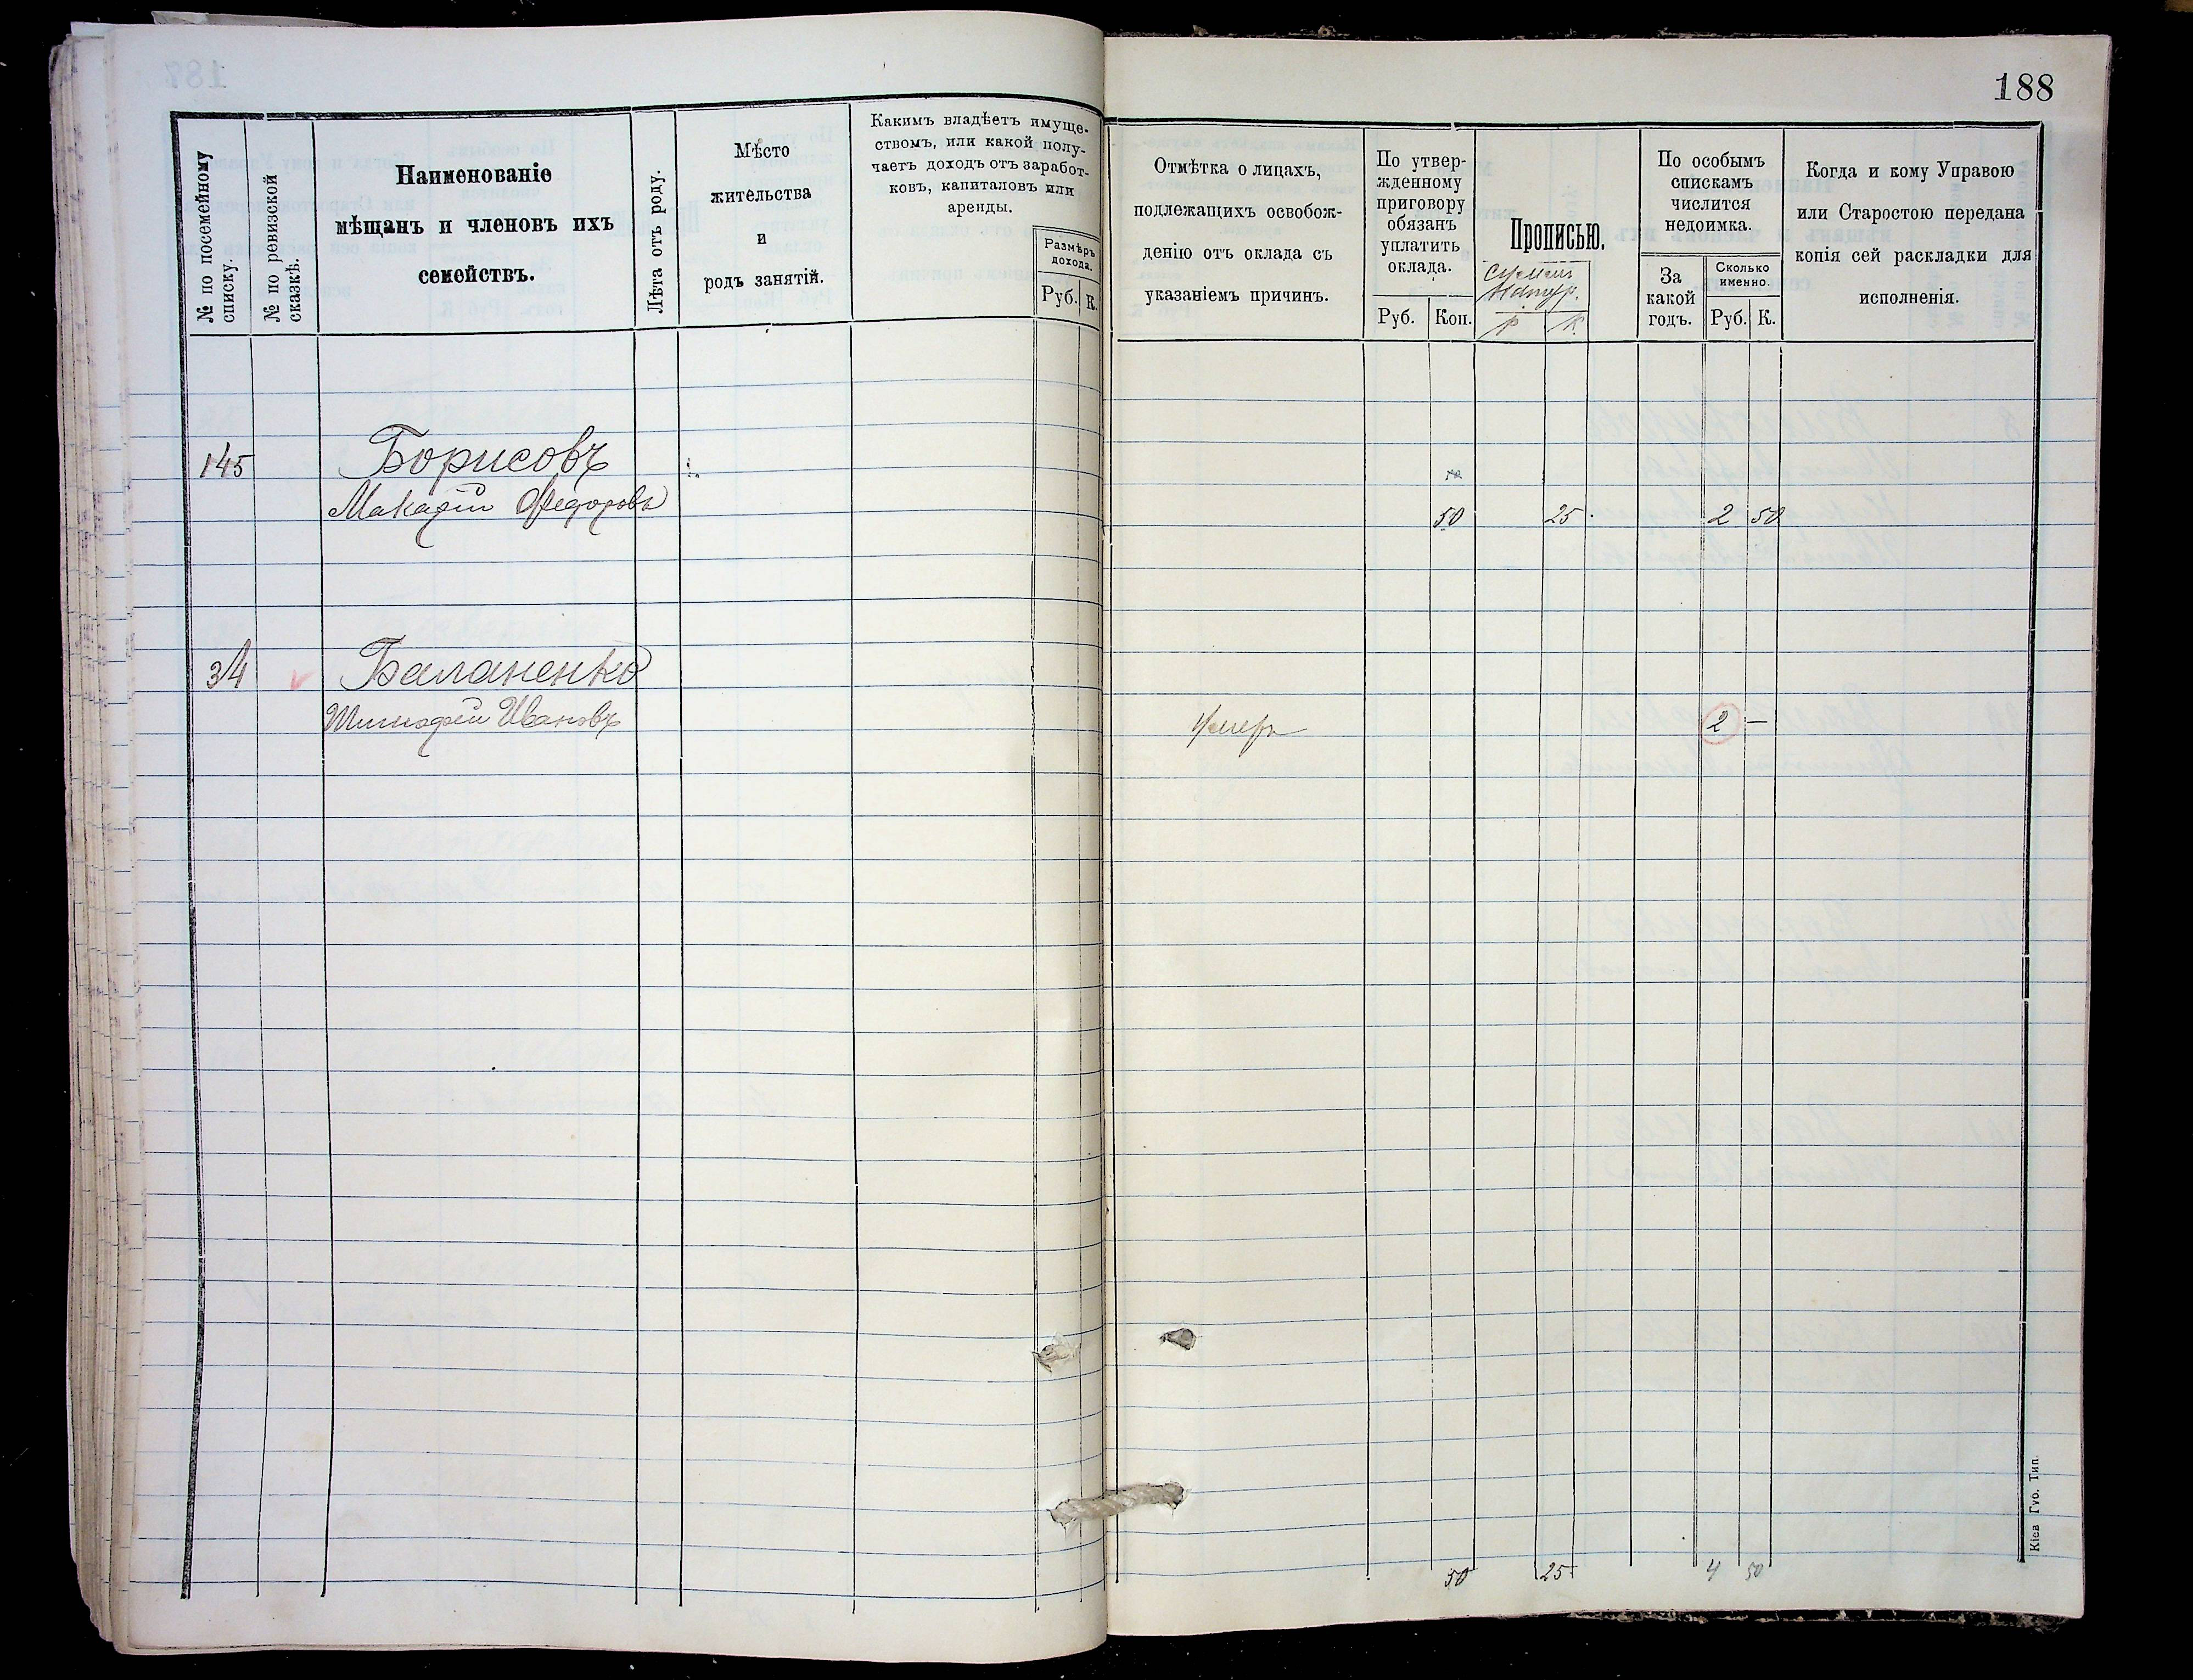 188
№ по посемейному списку.
№ по ревизской сказкѣ.
Наименованіе
мѣщанъ и членовъ ихъ
семействъ.
Лѣта отъ роду.
Мѣсто
жительства
и
родъ занятій.
Какимъ владѣетъ имуще-
ствомъ, или какой полу-
чаетъ доходъ отъ заработ-
ковъ, капиталовъ или
аренды.
Размѣръ
дохода.
Руб. К.
Отмѣтка о лицахъ,
подлежащихъ освобож-
денію отъ оклада съ
указаніемъ причинъ.
По утвер-
жденному
приговору
обязанъ
уплатить
оклада.
Руб. Коп.
Прописью.
Р К.
По особымъ
спискамъ
числится
недоимка.
За
какой
годъ.
Сколько
именно.
Руб. К.
Когда и кому Управою
или Старостою передана
копія сей раскладки для
исполненія.
145 Борисовъ
Макарій Федоровъ 50 25 2 50
34 Баланенко
Тимофей Ивановъ Умеръ 2 —
50 25 4 50
Кіев Губ. Тип.